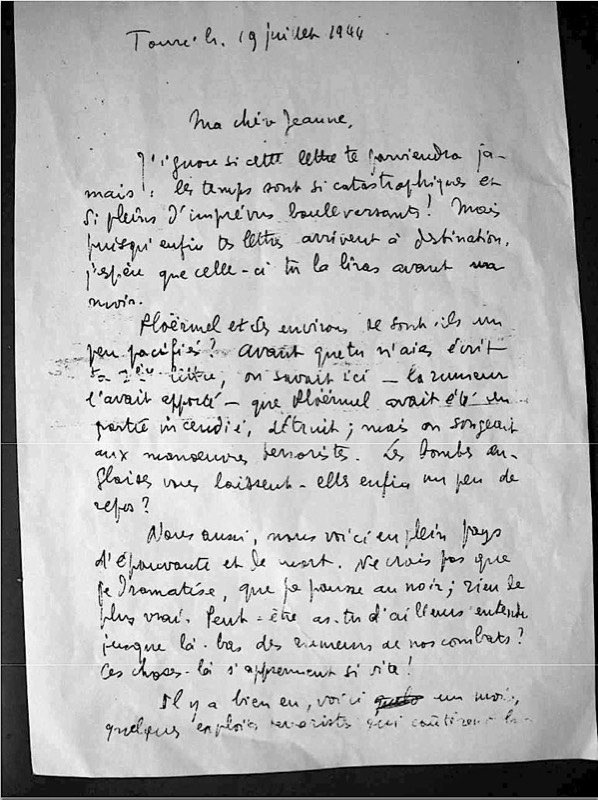 19 juillet 1944
Ma chère Jeanne,
J'ignore si cette lettre te parviendra ja-
mais : les temps sont si catastrophiques et
si pleins d'imprévus bouleversants ! Mais
puisqu'enfin tes lettres arrivent à destination,
j'espère que celle-ci tu la liras avant un
mois.
Ploërmel et ses environs se sont-ils un
peu pacifiés ? Avant que tu n'aies écrit
ta 2ème lettre, on savait ici – la rumeur
l'avait apporté – que Ploërmel avait été en
partie incendié, détruit ; mais on songeait
aux manoeuvres terroristes. Les bombes an-
glaises vous laissent-elles enfin un peu de
repos ?
Nous aussi, nous voici en plein pays
d'épouvante et de mort. Ne crois pas que
je dramatise, que je pousse au noir ; rien de
plus vrai. Peut-être as-tu d'ailleurs entendu
jusque là-bas des rumeurs de nos combats ?
Ces choses-là s'apprennent si vite !
Il y a bien eu, voici un mois,
quelques exploits terroristes qui coûtèrent la